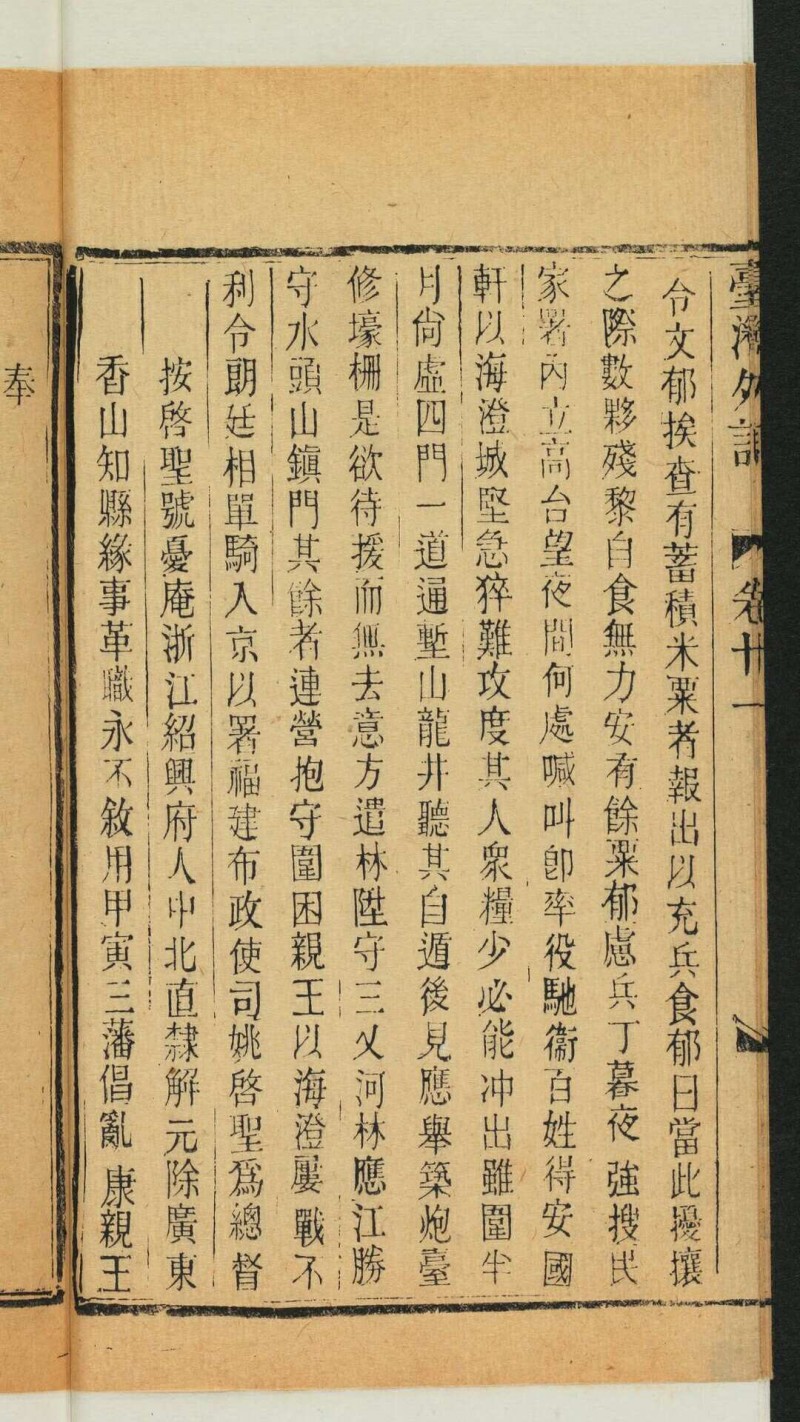 臺灣外記 卷廿一
令文郁挨查有蓄積米粟者報出以充兵食郁曰當此擾攘
之際數夥殘黎自食無力安有餘粟郁慮兵丁暮夜強搜民
家署內立高台望夜間何處喊叫卽率役馳衞百姓得安國
軒以海澄城堅急猝難攻度其人衆糧少必能冲出雖圍半
月尙虛四門一道通塹山龍井聽其自遁後見應舉築炮臺
修壕柵是欲待援而無去意方遣林陞守三乂河林應江勝
守水頭山鎮門其餘者連營抱守圍困親王以海澄屢戰不
利令朗廷相單騎入京以署福建布政使司姚啓聖爲總督
按啓聖號憂庵浙江紹興府人中北直隸解元除廣東
香山知縣緣事革職永不敘用甲寅三藩倡亂 康親王
奉